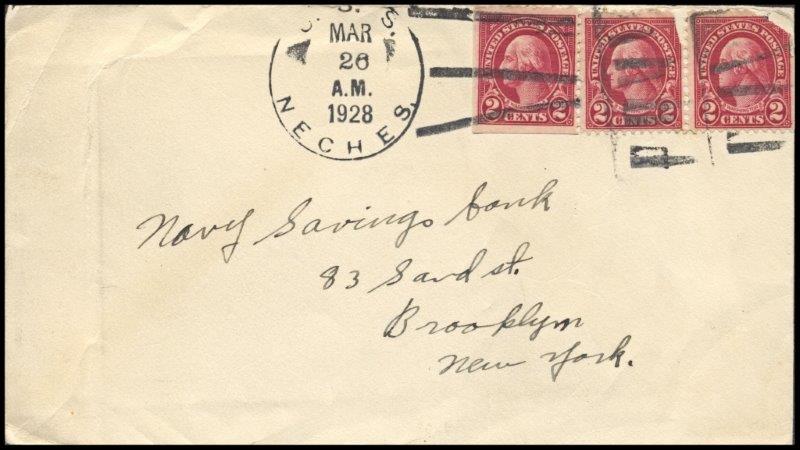 U. S. S.
MAR
26
A.M.
1928
NECHES.
UNITED STATES POSTAGE
2 CENTS 2
UNITED STATES POSTAGE
2 CENTS 2
UNITED STATES POSTAGE
2 CENTS 2
Navy Savings bank
83 Sand st.
Brooklyn
New York.